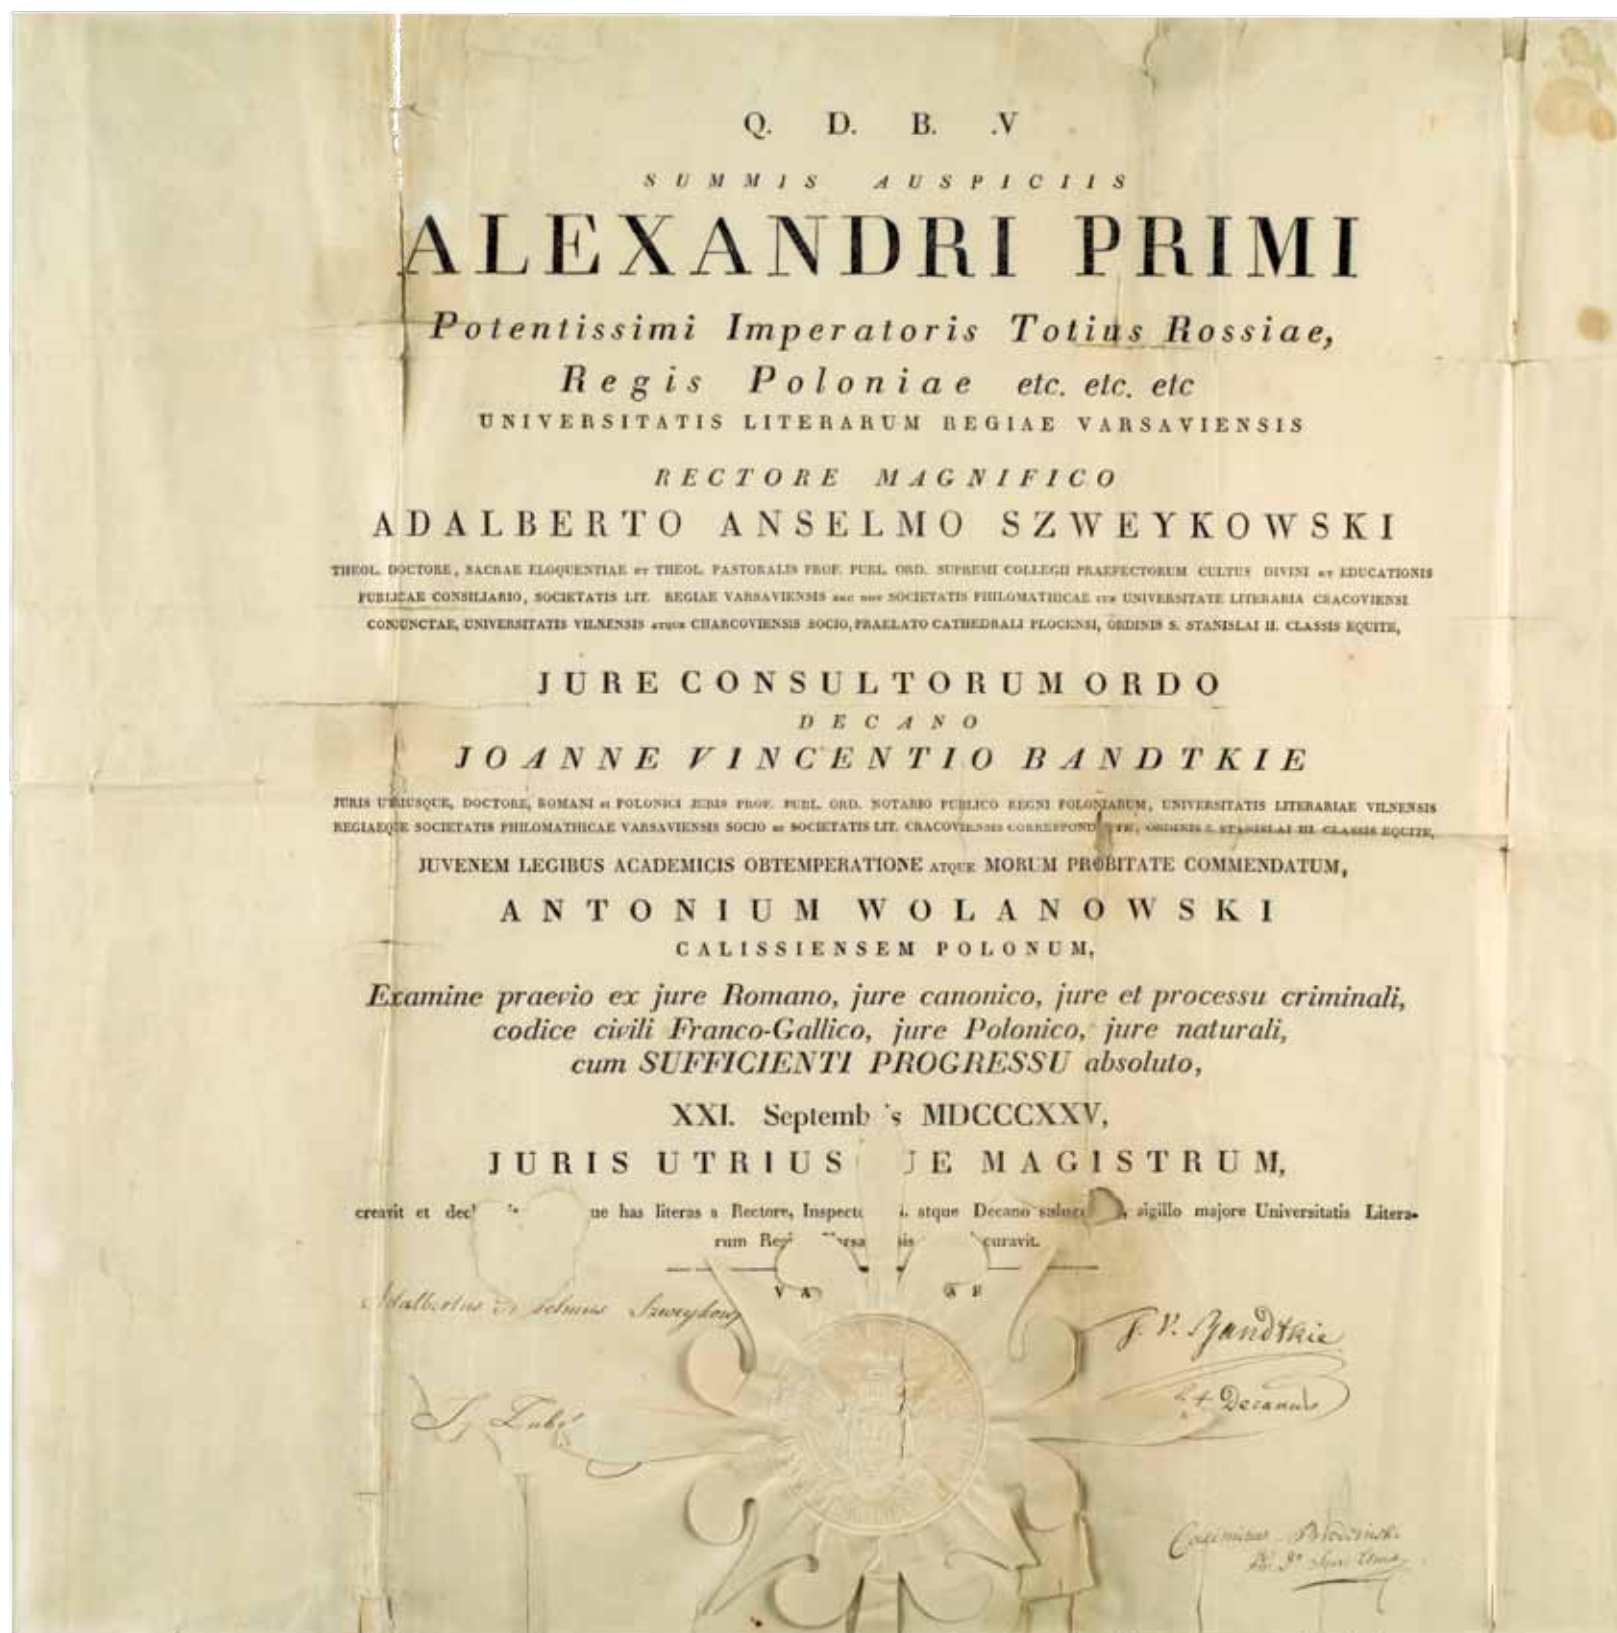 Q. D. B. .V
SUMMIS AUSPICIIS
ALEXANDRI PRIMI
Potentissimi Imperatoris Totius Rossiae,
Regis Poloniae etc. etc. etc
UNIVERSITATIS LITERARUM REGIAE VARSAVIENSIS
RECTORE MAGNIFICO
ADALBERTO ANSELMO SZWEYKOWSKI
THEOL. DOCTORE, SACRAE ELOQUENTIAE ET THEOL. PASTORALIS PROF. PUBL. ORD. SUPREMI COLLEGII PRAEFECTORUM CULTUS DIVINI ET EDUCATIONIS
PUBLICAE CONSILIARIO, SOCIETATIS LIT. REGIAE VARSAVIENSIS NEC NON SOCIETATIS PHILOMATHICAE CUM UNIVERSITATE LITERARIA CRACOVIENSI
CONJUNCTAE, UNIVERSITATIS VILNENSIS ATQUE CHARCOVIENSIS SOCIO, PRAELATO CATHEDRALI PLOCENSI, ORDINIS S. STANISLAI II. CLASSIS EQUITE,
JURECONSULTORUM ORDO
DECANO
JOANNE VINCENTIO BANDTKIE
JURIS UTRIUSQUE, DOCTORE, ROMANI et POLONICI JURIS PROF. PUBL. ORD. NOTARIO PUBLICO REGNI POLONIARUM, UNIVERSITATIS LITERARIAE VILNENSIS
REGIAEQUE SOCIETATIS PHILOMATHICAE VARSAVIENSIS SOCIO SOCIETATIS LIT. CRACOVIENSIS ORDINIS S. STANISLAI III. CLASSIS EQUITE,
JUVENEM LEGIBUS ACADEMICIS OBTEMPERATIONE ATQUE MORUM PROBITATE COMMENDATUM,
ANTONIUM WOLANOWSKI
CALISSIENSEM POLONUM,
Examine praevio ex jure Romano, jure canonico, jure et processu criminali,
codice civili Franco-Gallico, jure Polonico, jure naturali,
cum SUFFICIENTI PROGRESSU absoluto,
XXI. Septemb 's MDCCCXXV,
JURIS UTRIUS UE MAGISTRUM,
creavit et has literas a Rectore, atque Decano sigillo majore Universitatis Litera-
rum curavit.
Adalbertus Szweykow
J. V. Bandtkie
Decanus
Casimirus